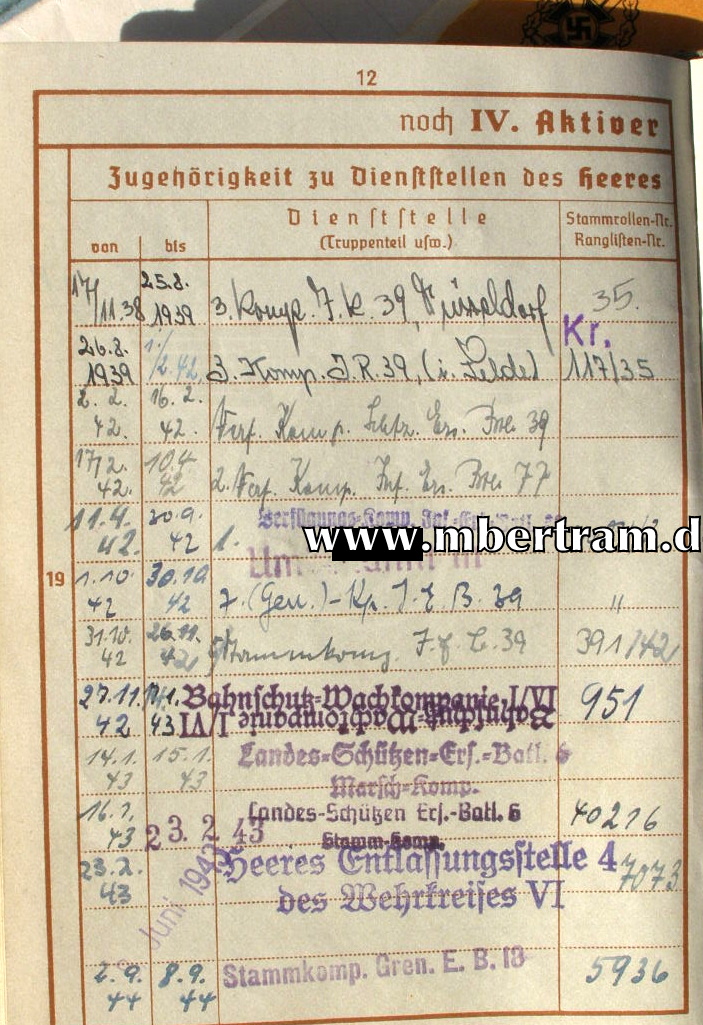 12
noch IV. Aktiver
Zugehörigkeit zu Dienststellen des Heeres
von bis Dienststelle (Truppenteil usw.) Stammrollen-Nr. Ranglisten-Nr.
17/11.38 25.8. 1939 3. Komp. J. R. 39, Düsseldorf 35.
Kr.
26.8. 1939 1./2.42 3. Komp. J.R. 39, (i. Felde) 117/35
2. 2. 42. 16. 2. 42. Komp. Ers. 39
17/2. 42. 10.4 42 2. Komp. Inf. Ers. 77
11.4. 42. 30.9. 42 1.
www.mbertram.d
19
1.10. 42 30.10 42 7. (Gen.)-Kp. J. E. B. 39 "
31.10. 42 26.11. 42 Stammkomp. 39 391/42
27.11. 42 43 Bahnschutz-Wachkompanie I/VI 951
Bahnschutz-Wachkompanie I/VI
14.1. 43 15.1. 43 Landes-Schützen-Ers.-Batl. 6
Marsch-Komp.
16.1. 43 23. 2 43 Landes-Schützen Ers.-Batl. 6 40216
Stamm-Komp.
23.2. 43 Juni 194 Heeres Entlassungsstelle 4 7073
des Wehrkreises VI
2.9. 44 8.9. 44 Stammkomp. Gren. E. B. 18 5936